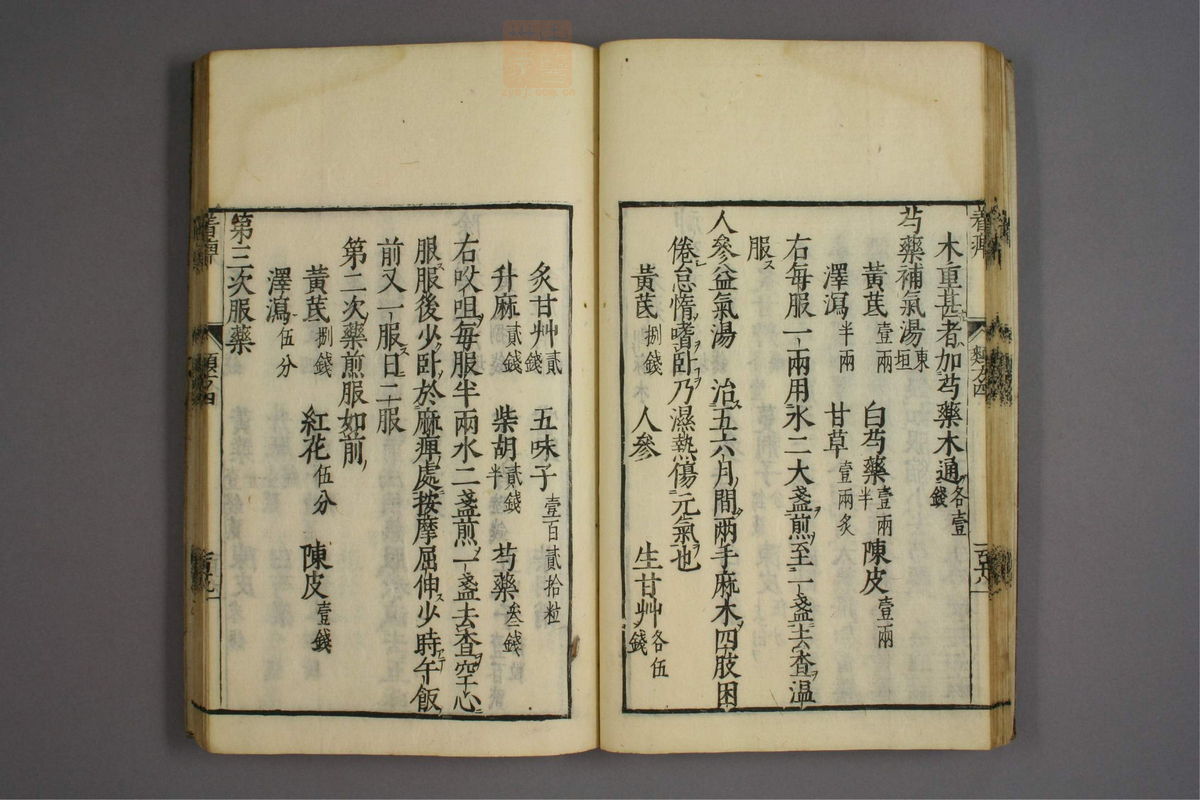 木重甚者加芍藥木通各壹錢
芍藥補氣湯東垣
黃芪壹兩 白芍藥壹兩半 陳皮壹兩
澤瀉半兩 甘草壹兩炙
右每服一兩用水二大盞煎至一盞去查溫
服
人參益氣湯 治五六月間兩手麻木四肢困
倦怠惰嗜卧乃濕熱傷元氣也
黃芪捌錢 人參 生甘艸各伍錢
炙甘艸貳錢 五味子壹百貳拾粒
升麻貳錢 柴胡貳錢半 芍藥叁錢
右㕮咀每服半兩水二盞煎一盞去查空心
服服後少卧於麻痺處按摩屈伸少時午飯
前又一服日二服
第二次藥煎服如前
黃芪捌錢 紅花伍分 陳皮壹錢
澤瀉伍分
第三次服藥
類方四